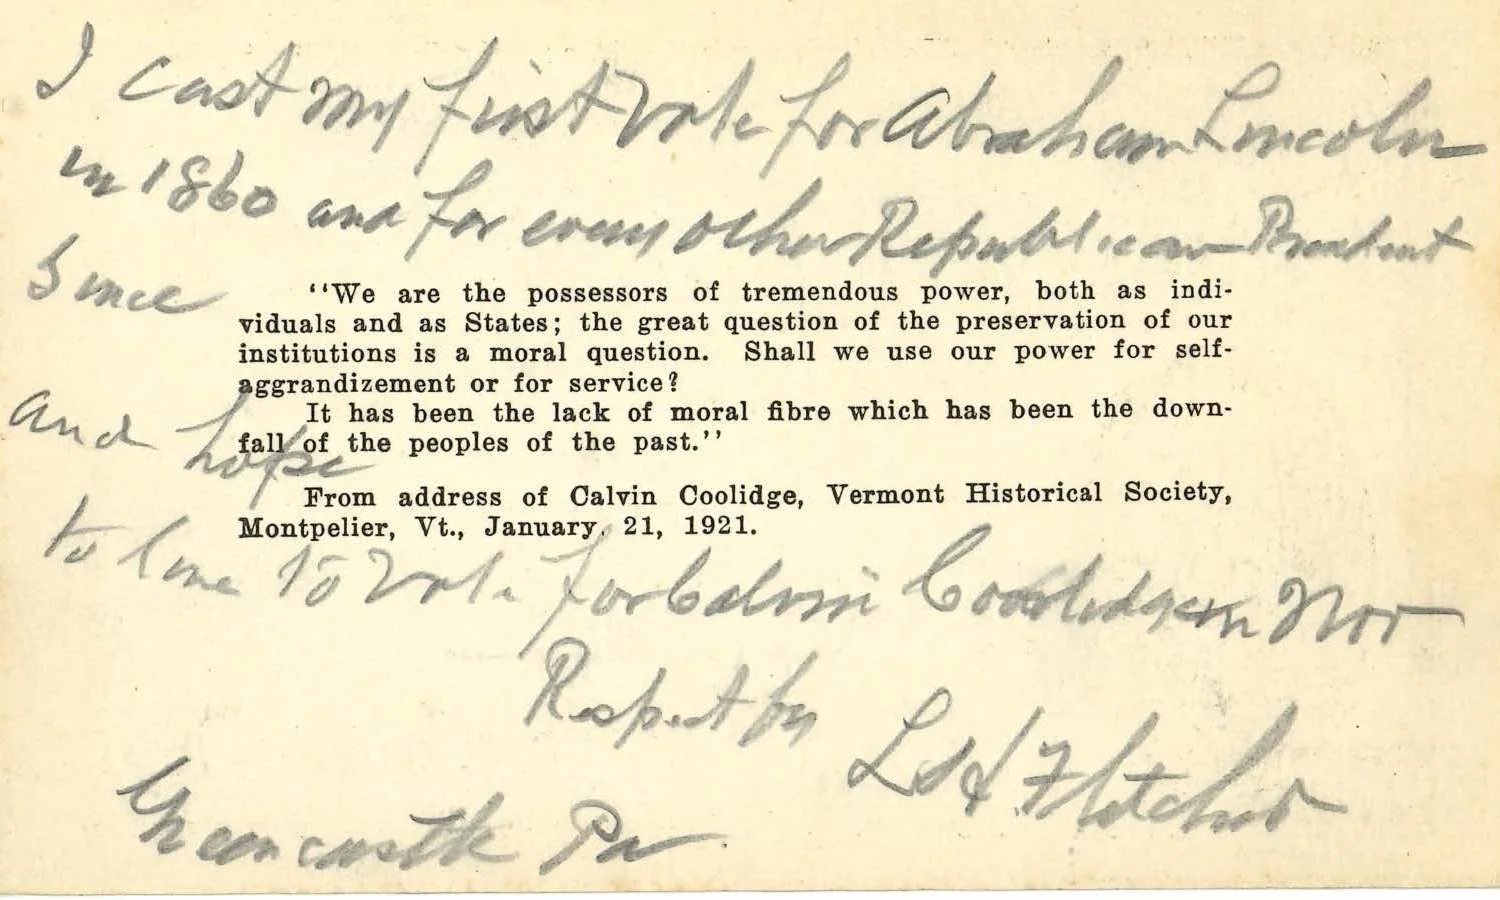 I cast my first vote for Abraham Lincoln
in 1860 and for every other Republican President
Since
"We are the possessors of tremendous power, both as indi-
viduals and as States; the great question of the preservation of our
institutions is a moral question. Shall we use our power for self-
aggrandizement or for service?
It has been the lack of moral fibre which has been the down-
fall of the peoples of the past."
and hope
From address of Calvin Coolidge, Vermont Historical Society,
Montpelier, Vt., January 21, 1921.
to live to vote for Calvin Coolidge in Nov
Respectfy
Fletcher
Greencastle Pa